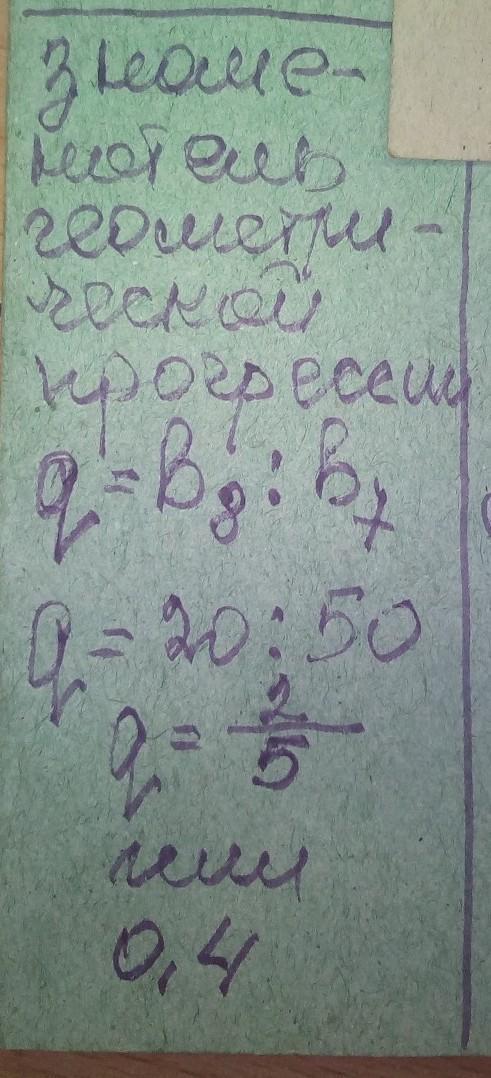 знаме-
натель
геометри-
ческой
прогрессии
q = b₈ : b₇
q = 20 : 50
q = 2/5
или
0,4